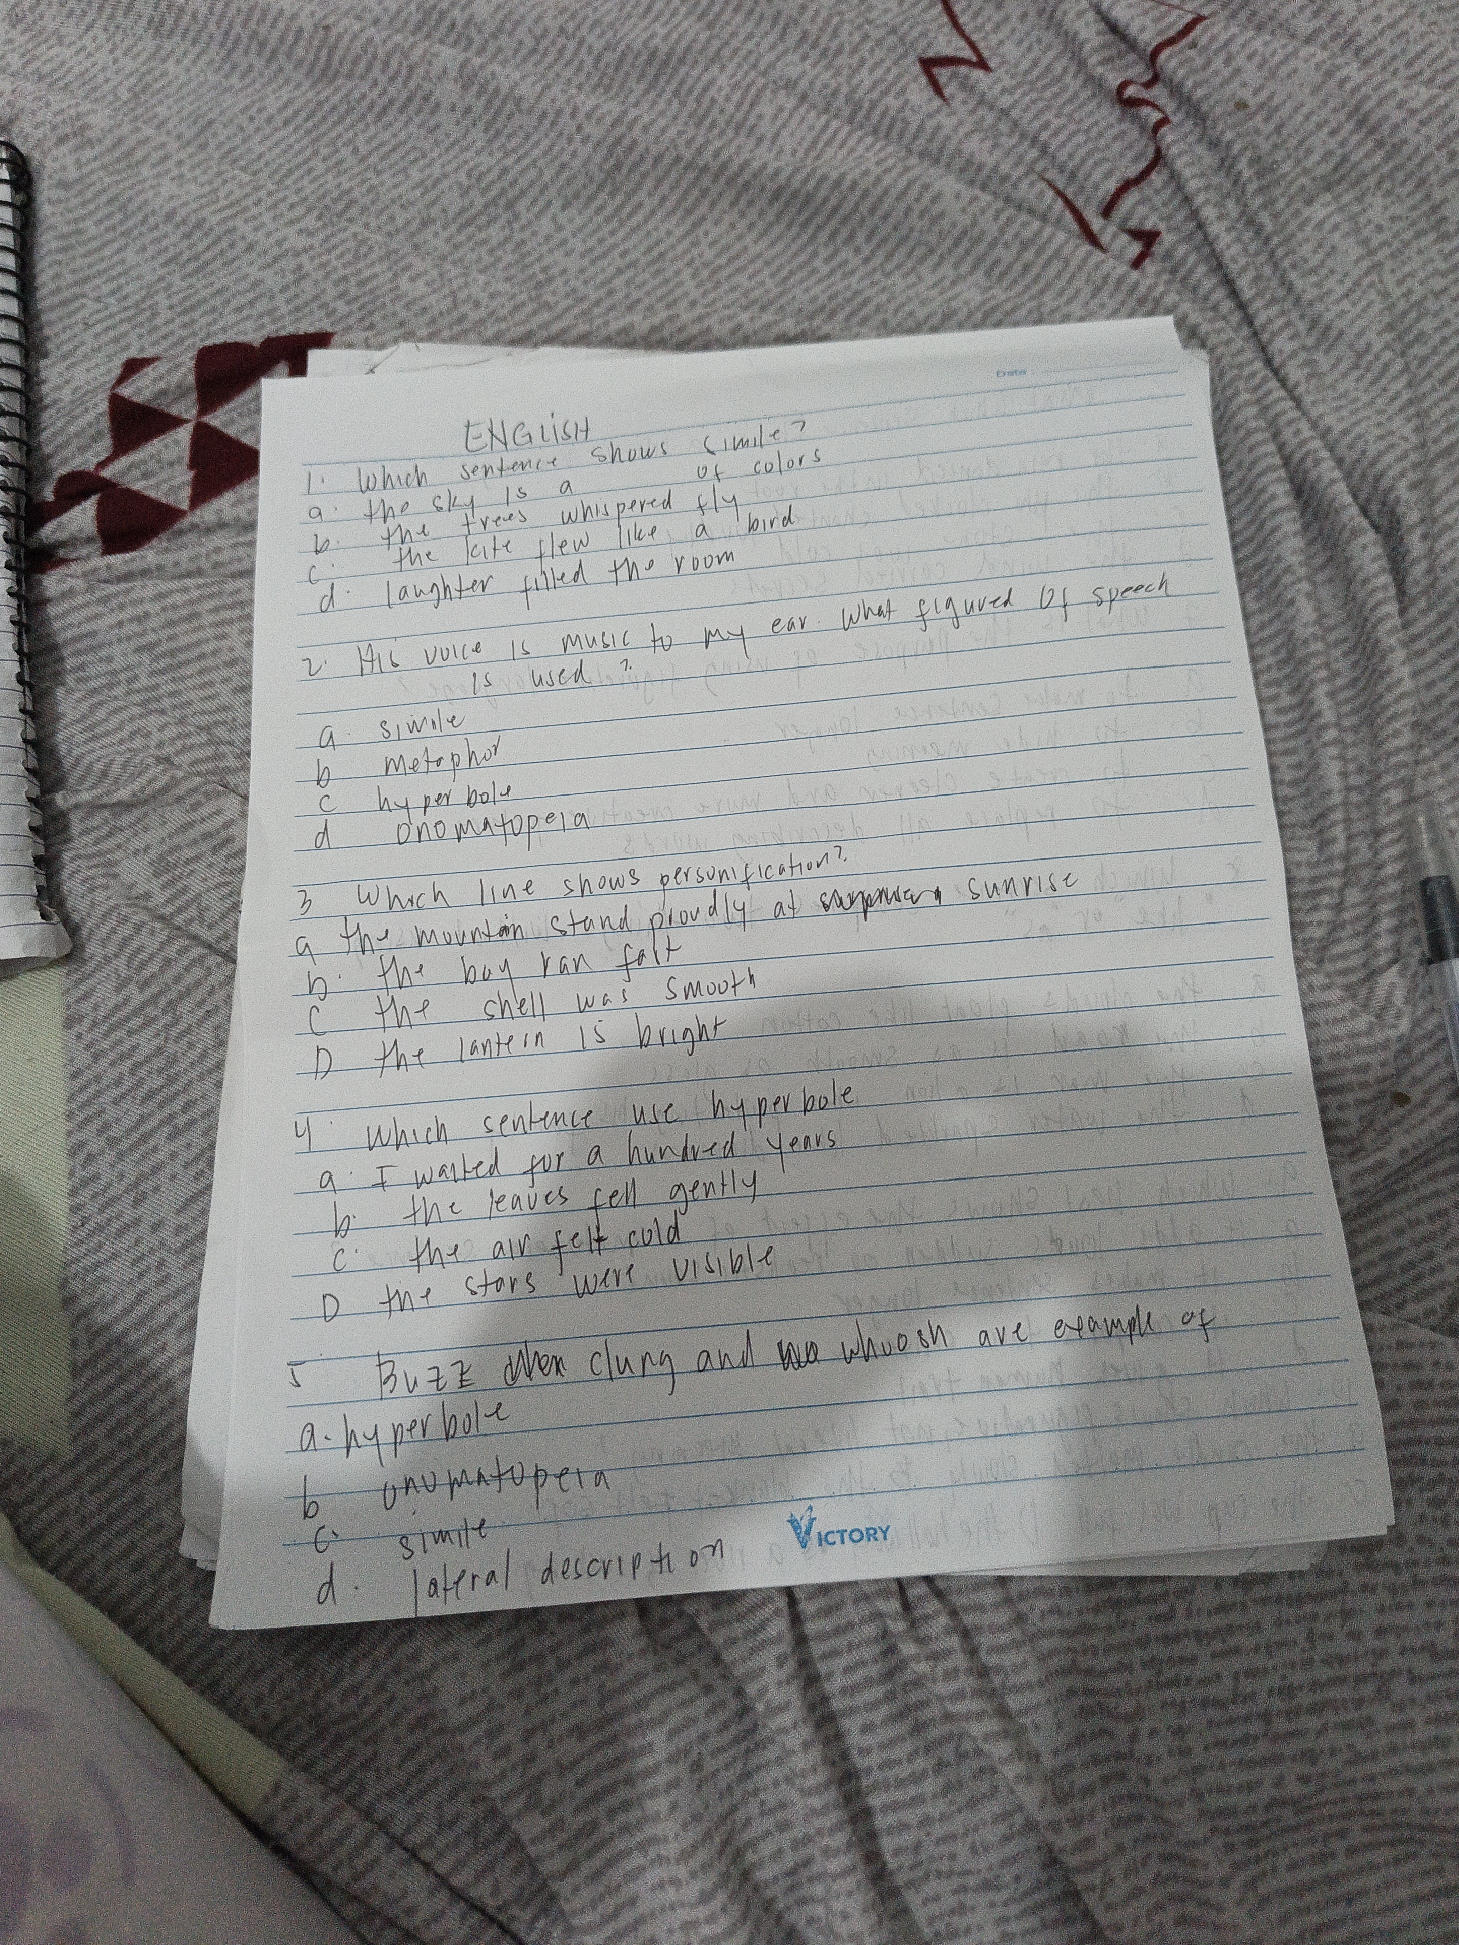 Date
ENGLISH
1. Which sentence shows simile?
a. the sky is a of colors
b. the trees whispered fly
c. the kite flew like a bird
d. laughter filled the room
2. His voice is music to my ear. What figured of speech
is used?
a. simile
b metaphor
c hyperbole
d onomatopeia
3 Which line shows personification?
a the mountain stand proudly at sunrise
b. the boy ran falt
C the shell was smooth
D the lantern is bright
4. Which sentence use hyperbole
a. I waited for a hundred years
b. the leaves fell gently
c. the air felt cold
D the stars were visible
5 Buzz clung and whoosh are example of
a. hyperbole
b onomatopeia
c. simile
d. lateral description
VICTORY